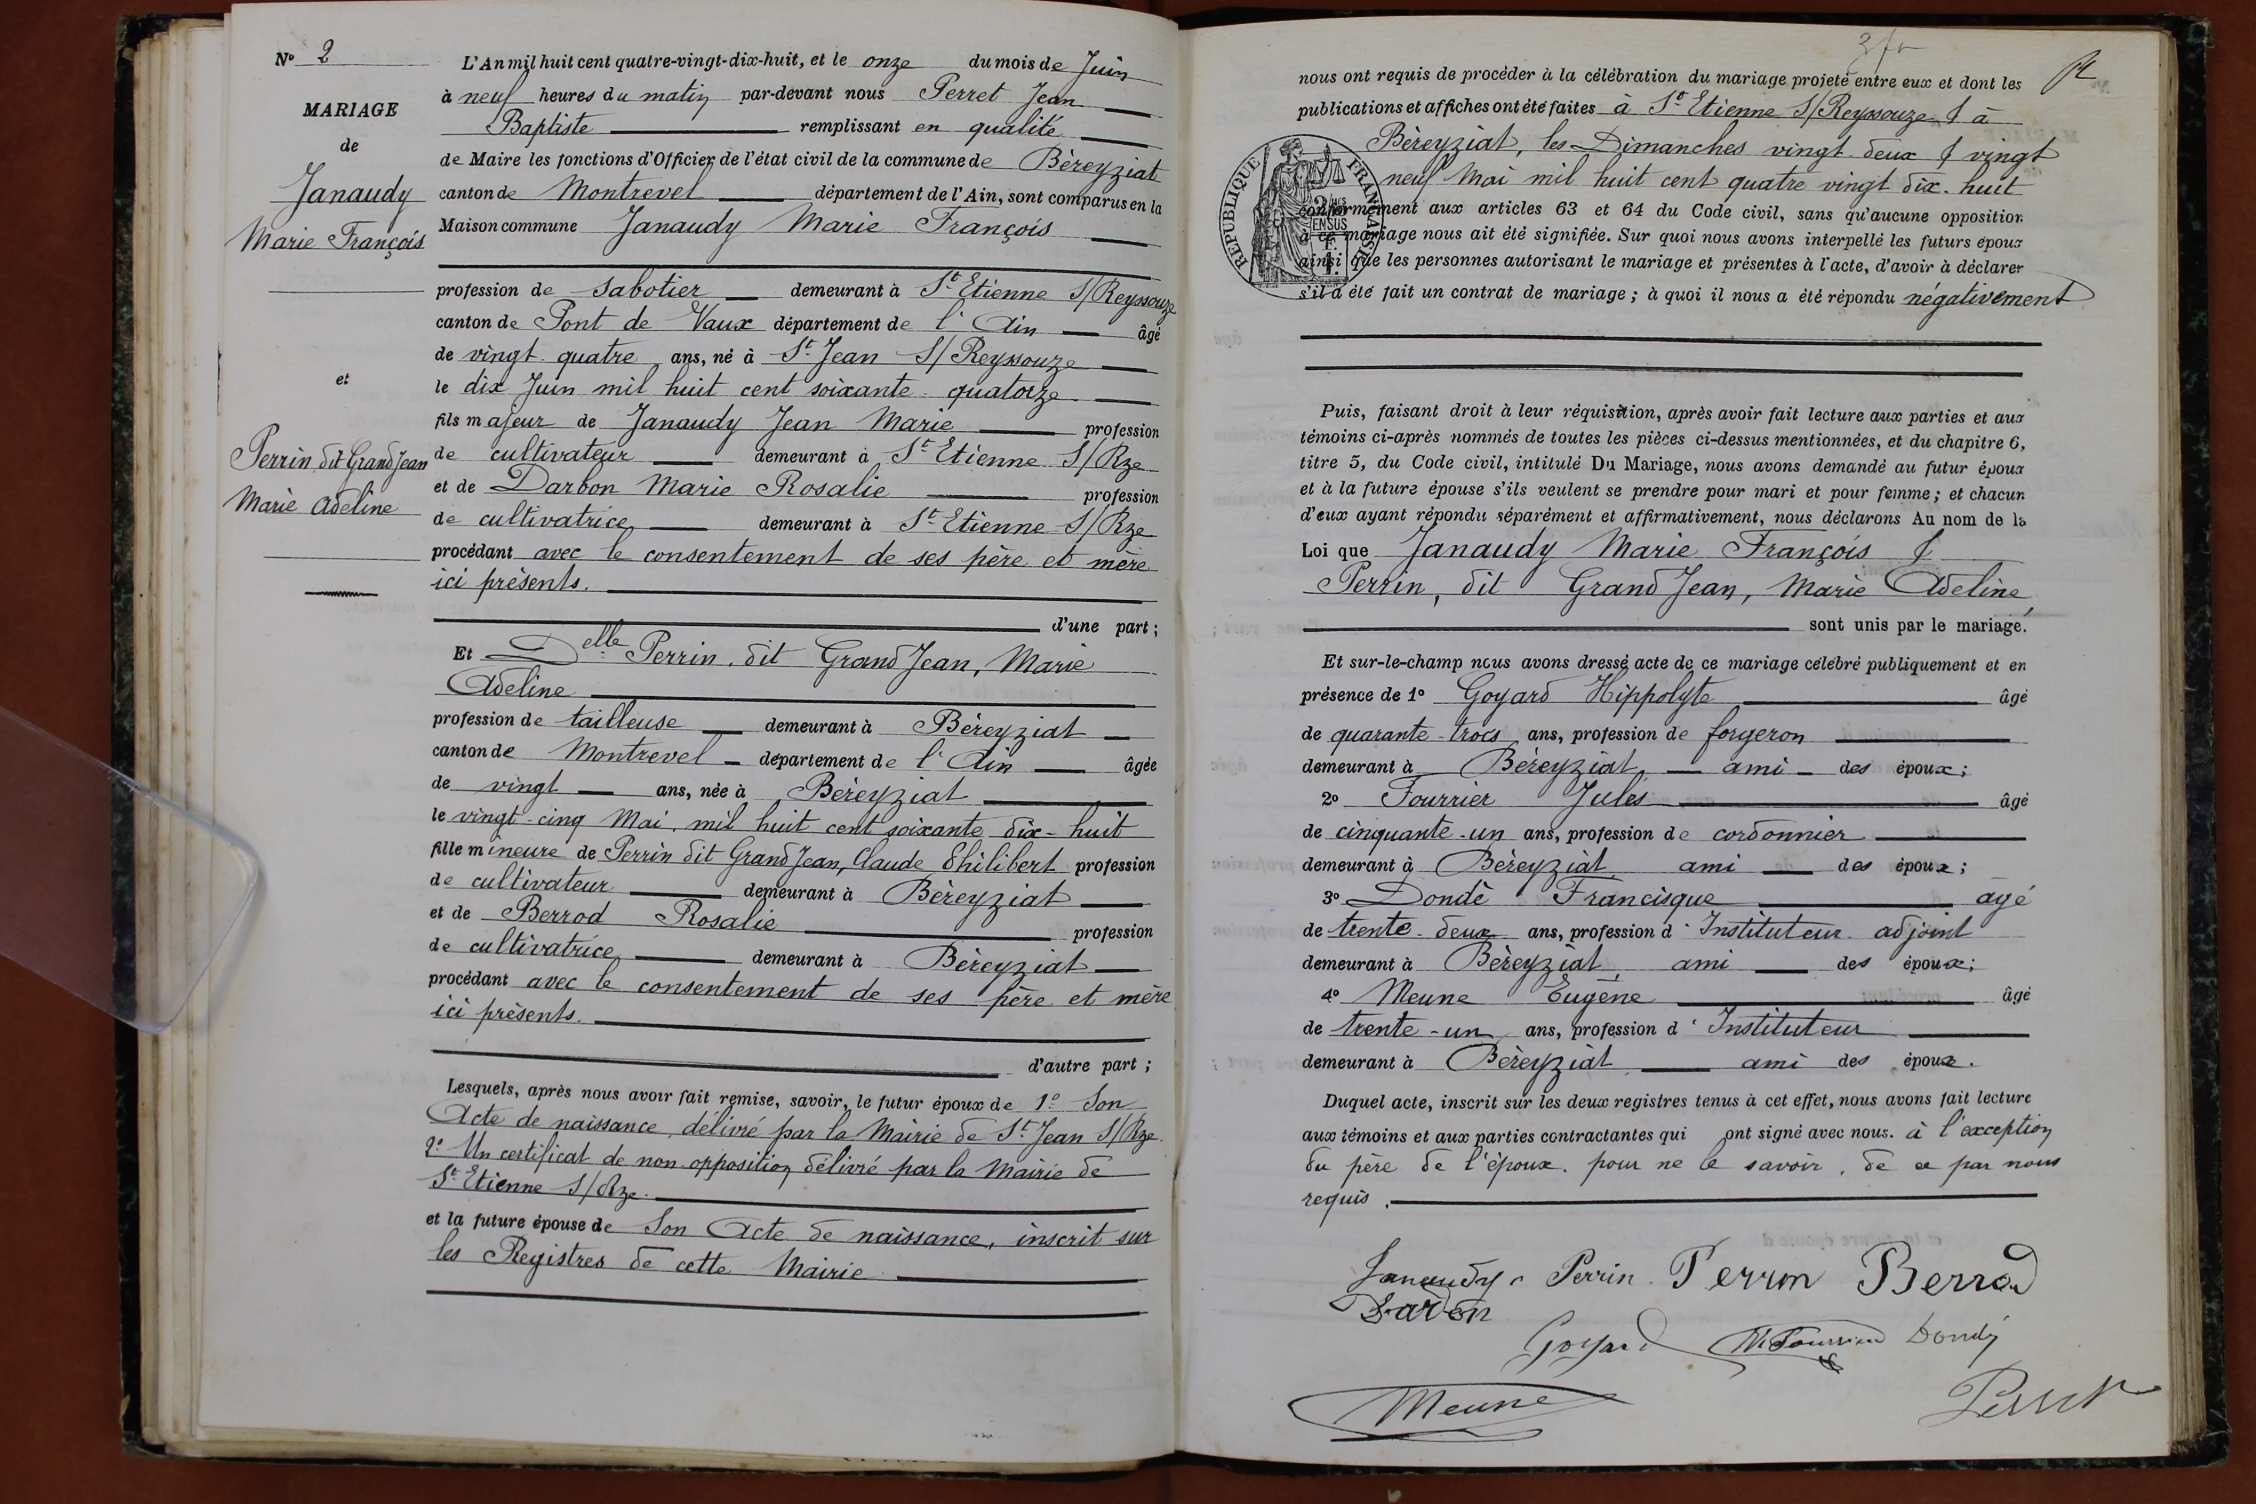 N° 2
MARIAGE
de
Janaudy
Marie François
et
Perrin dit GrandJean
Marie Adeline
L'An mil huit cent quatre-vingt-dix-huit, et le onze du mois de Juin
à neuf heures du matin par-devant nous Perret Jean
Baptiste remplissant en qualité
de Maire les fonctions d'Officier de l'état civil de la commune de Béreyziat
canton de Montrevel département de l'Ain, sont comparus en la
Maison commune Janaudy Marie François
profession de sabotier demeurant à St Etienne S/Reyssouze
canton de Pont de Vaux département de l'Ain âgé
de vingt-quatre ans, né à St Jean S/Reyssouze
le dix Juin mil huit cent soixante-quatorze
fils majeur de Janaudy Jean Marie profession
de cultivateur demeurant à St Etienne S/Rze
et de Darbon Marie Rosalie profession
de cultivatrice demeurant à St Etienne S/Rze
procédant avec le consentement de ses père et mère
ici présents.
d'une part ;
Et Delle Perrin, dit GrandJean, Marie
Adeline
profession de tailleuse demeurant à Béreyziat
canton de Montrevel département de l'Ain âgée
de vingt ans, née à Béreyziat
le vingt-cinq Mai, mil huit cent soixante dix-huit
fille mineure de Perrin dit GrandJean, Claude Philibert profession
de cultivateur demeurant à Béreyziat
et de Berrod Rosalie profession
de cultivatrice demeurant à Béreyziat
procédant avec le consentement de ses père et mère
ici présents.
d'autre part ;
Lesquels, après nous avoir fait remise, savoir, le futur époux de 1° Son
Acte de naissance, délivré par la Mairie de St Jean S/Rze.
2° Un certificat de non-opposition délivré par la Mairie de
St Etienne S/Rze.
et la future épouse de Son Acte de naissance, inscrit sur
les Registres de cette Mairie
nous ont requis de procéder à la célébration du mariage projeté entre eux et dont les
publications et affiches ont été faites à St Etienne S/Reyssouze & à
Béreyziat, les Dimanches vingt-deux & vingt
neuf Mai mil huit cent quatre vingt dix-huit
conformément aux articles 63 et 64 du Code civil, sans qu'aucune opposition
à ce mariage nous ait été signifiée. Sur quoi nous avons interpellé les futurs époux
ainsi que les personnes autorisant le mariage et présentes à l'acte, d'avoir à déclarer
s'il a été fait un contrat de mariage ; à quoi il nous a été répondu négativement
REPUBLIQUE FRANCAISE
EN SUS
Puis, faisant droit à leur réquisition, après avoir fait lecture aux parties et aux
témoins ci-après nommés de toutes les pièces ci-dessus mentionnées, et du chapitre 6,
titre 5, du Code civil, intitulé Du Mariage, nous avons demandé au futur époux
et à la future épouse s'ils veulent se prendre pour mari et pour femme ; et chacun
d'eux ayant répondu séparément et affirmativement, nous déclarons Au nom de la
Loi que Janaudy Marie François &
Perrin, dit GrandJean, Marie Adeline,
sont unis par le mariage.
Et sur-le-champ nous avons dressé acte de ce mariage célébré publiquement et en
présence de 1° Goyard Hippolyte âgé
de quarante-trois ans, profession de forgeron
demeurant à Béreyziat ami des époux ;
2° Fourrier Jules âgé
de cinquante-un ans, profession de cordonnier
demeurant à Béreyziat ami des époux ;
3° Dondé Francisque agé
de trente-deux ans, profession d'Instituteur adjoint
demeurant à Béreyziat, ami des époux ;
4° Meune Eugène âgé
de trente-un ans, profession d'Instituteur
demeurant à Béreyziat ami des époux.
Duquel acte, inscrit sur les deux registres tenus à cet effet, nous avons fait lecture
aux témoins et aux parties contractantes qui ont signé avec nous. à l'exception
du père de l'époux, pour ne le savoir, de ce par nous
requis.
Janaudy Perrin Perrin Berrod
Darbon
Goyard Fourrier Dondé
Meune Perret